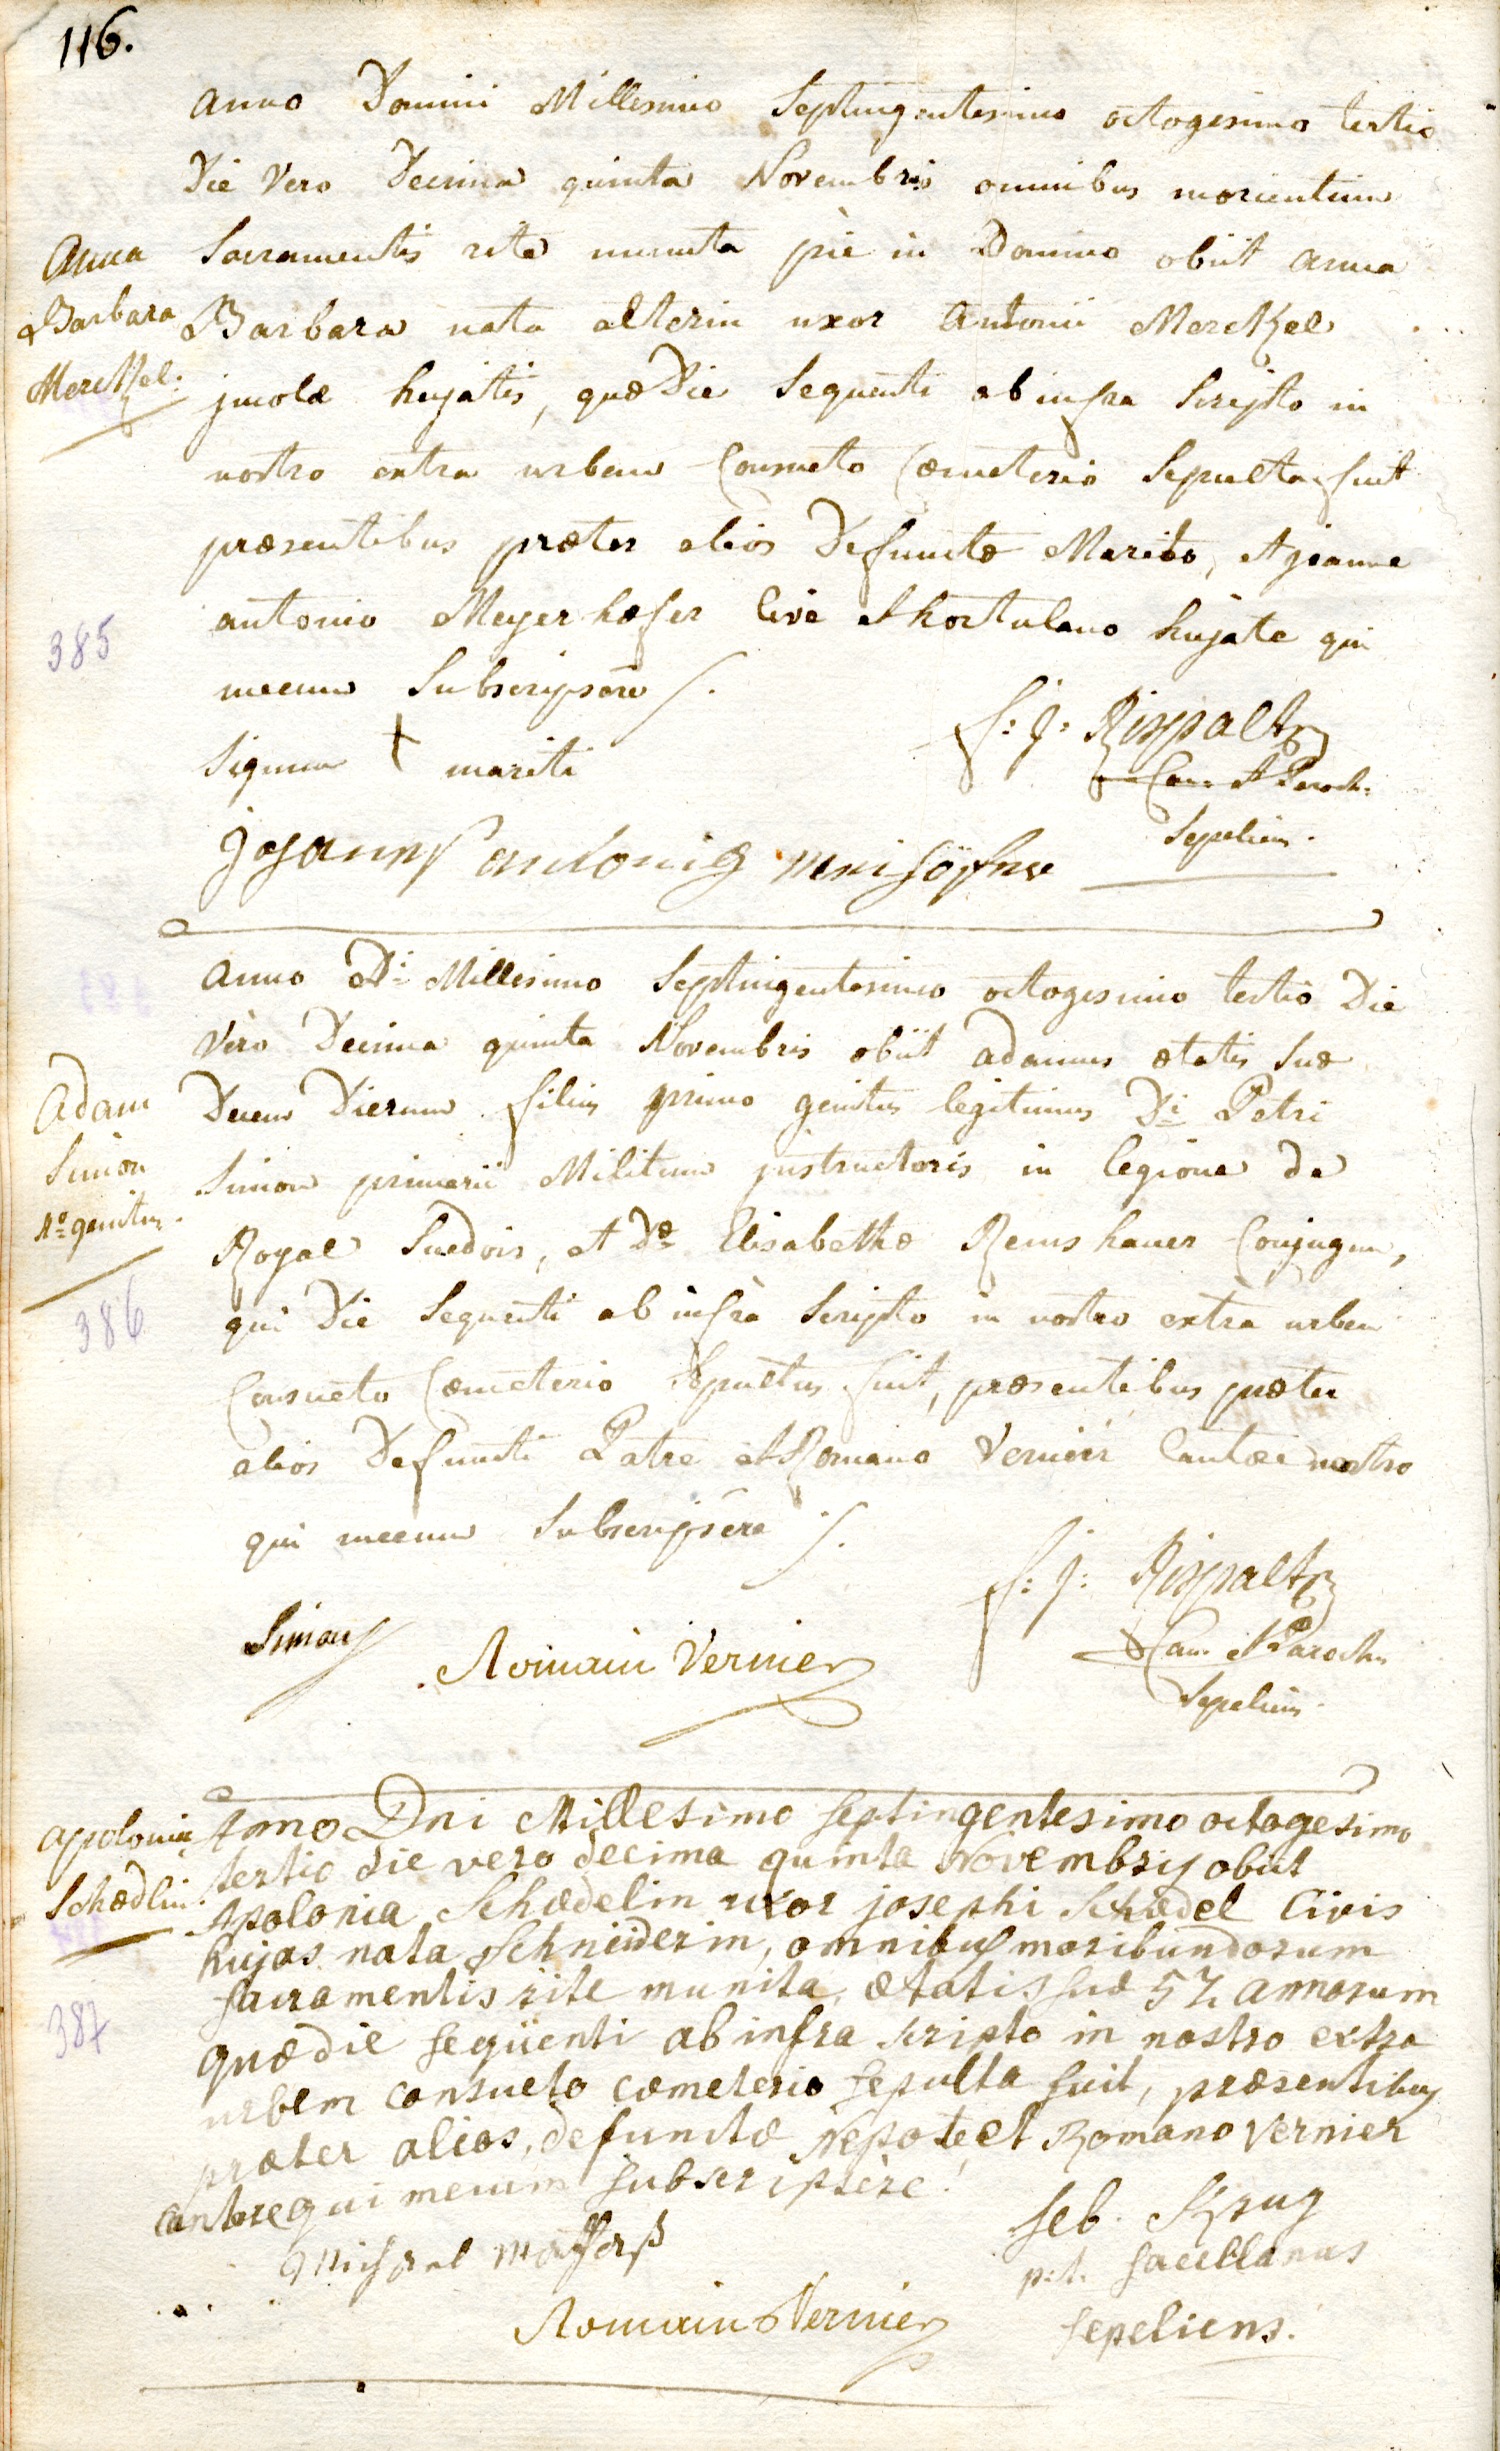 116.
Anno Domini Millesimo Septingentesimo octogesimo tertio
Die Vero Decima quinta Novembris omnibus morientium
Anna Sacramentis rite munita piè in Domino obiit Anna
Barbara Barbara nata alterin uxor Antonii Merckel
Merckel. jncolæ hujatis, quæ Die Sequenti ab infra Scripto in
nostro extra urbem Consueto Cœmeterio Sepulta fuit
præsentibus præter alios Defunctæ Marito, et joanne
385 antonio Meyerhoffer Cive et hortulano hujate qui
mecum Subscripsêre /.
Signum + mariti
f: J: Rispaltz
Can: et Paroch:
Sepeliens.
Johannes antonig meihöffer
Anno Di Millesimo Septingentesimo octogesimo tertio Die
Vero Decima quinta Novembris obiit adamus ætatis suæ
Adam Decem Dierum filius primo genitus legitimus Di Petri
Simon Simon primarii Militum jnstructoris in legione de
1º genitus. Royal Suedois, et Dæ Elisabethæ Remshauer Conjugum,
386 qui Die Sequenti ab infrà Scripto in nostro extrà urbem
Consueto Cœmeterio Sepultus fuit, præsentibus præter
alios Defuncti Patre et Romano Vernier Cantore nostro
qui mecum Subscripsêre /.
f: J: Rispaltz
Can. et Parochus
Sepeliens.
Simon
Romain Vernier
Anno Dni Millesimo Septingentesimo octogesimo
apolonia tertio die vero decima quinta Novembris obiit
Schœdlin. Apolonia Schædelin uxor josephi Schædel Civis
hujas nata Schneiderin, omnibus moribundorum
sacramentis rite munita, ætatis suæ 52 annorum
387 quæ die sequenti ab infra scripto in nostro extra
urbem consueto cœmeterio sepulta fuit, præsentibus
præter alios, defunctæ Nepote, et Romano Vernier
cantore qui mecum subscripsêre.
Seb. Krug
p.t. Sacellanus
sepeliens.
Michael
Romain Vernier